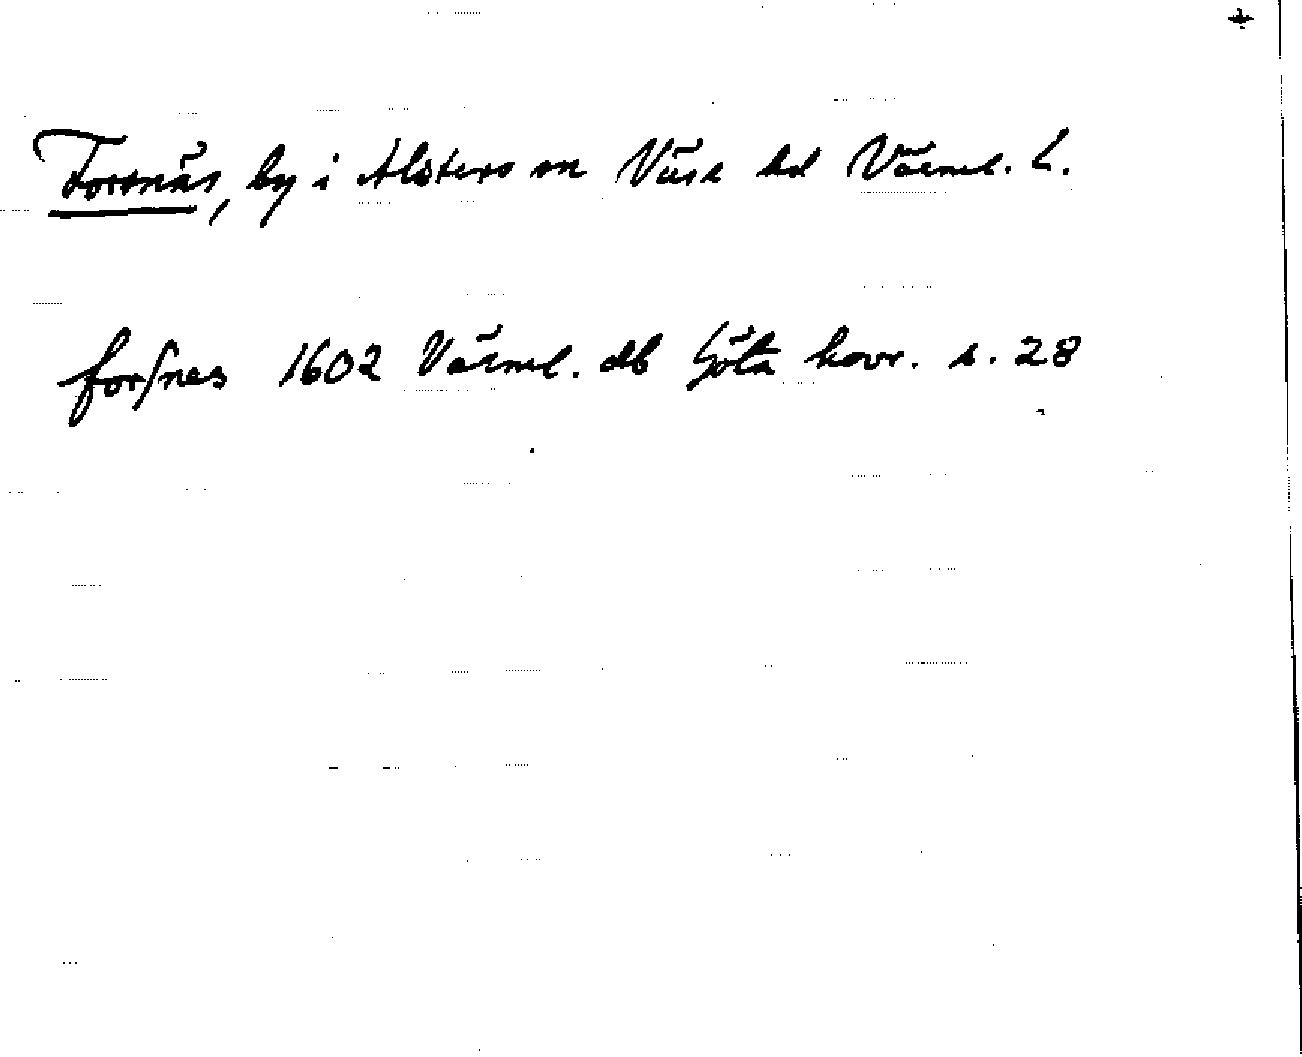 Forsnäs, by i Alsters sn Väse hd Värml. L.
forsnes 1602 Värml. db Göta hovr. s. 28